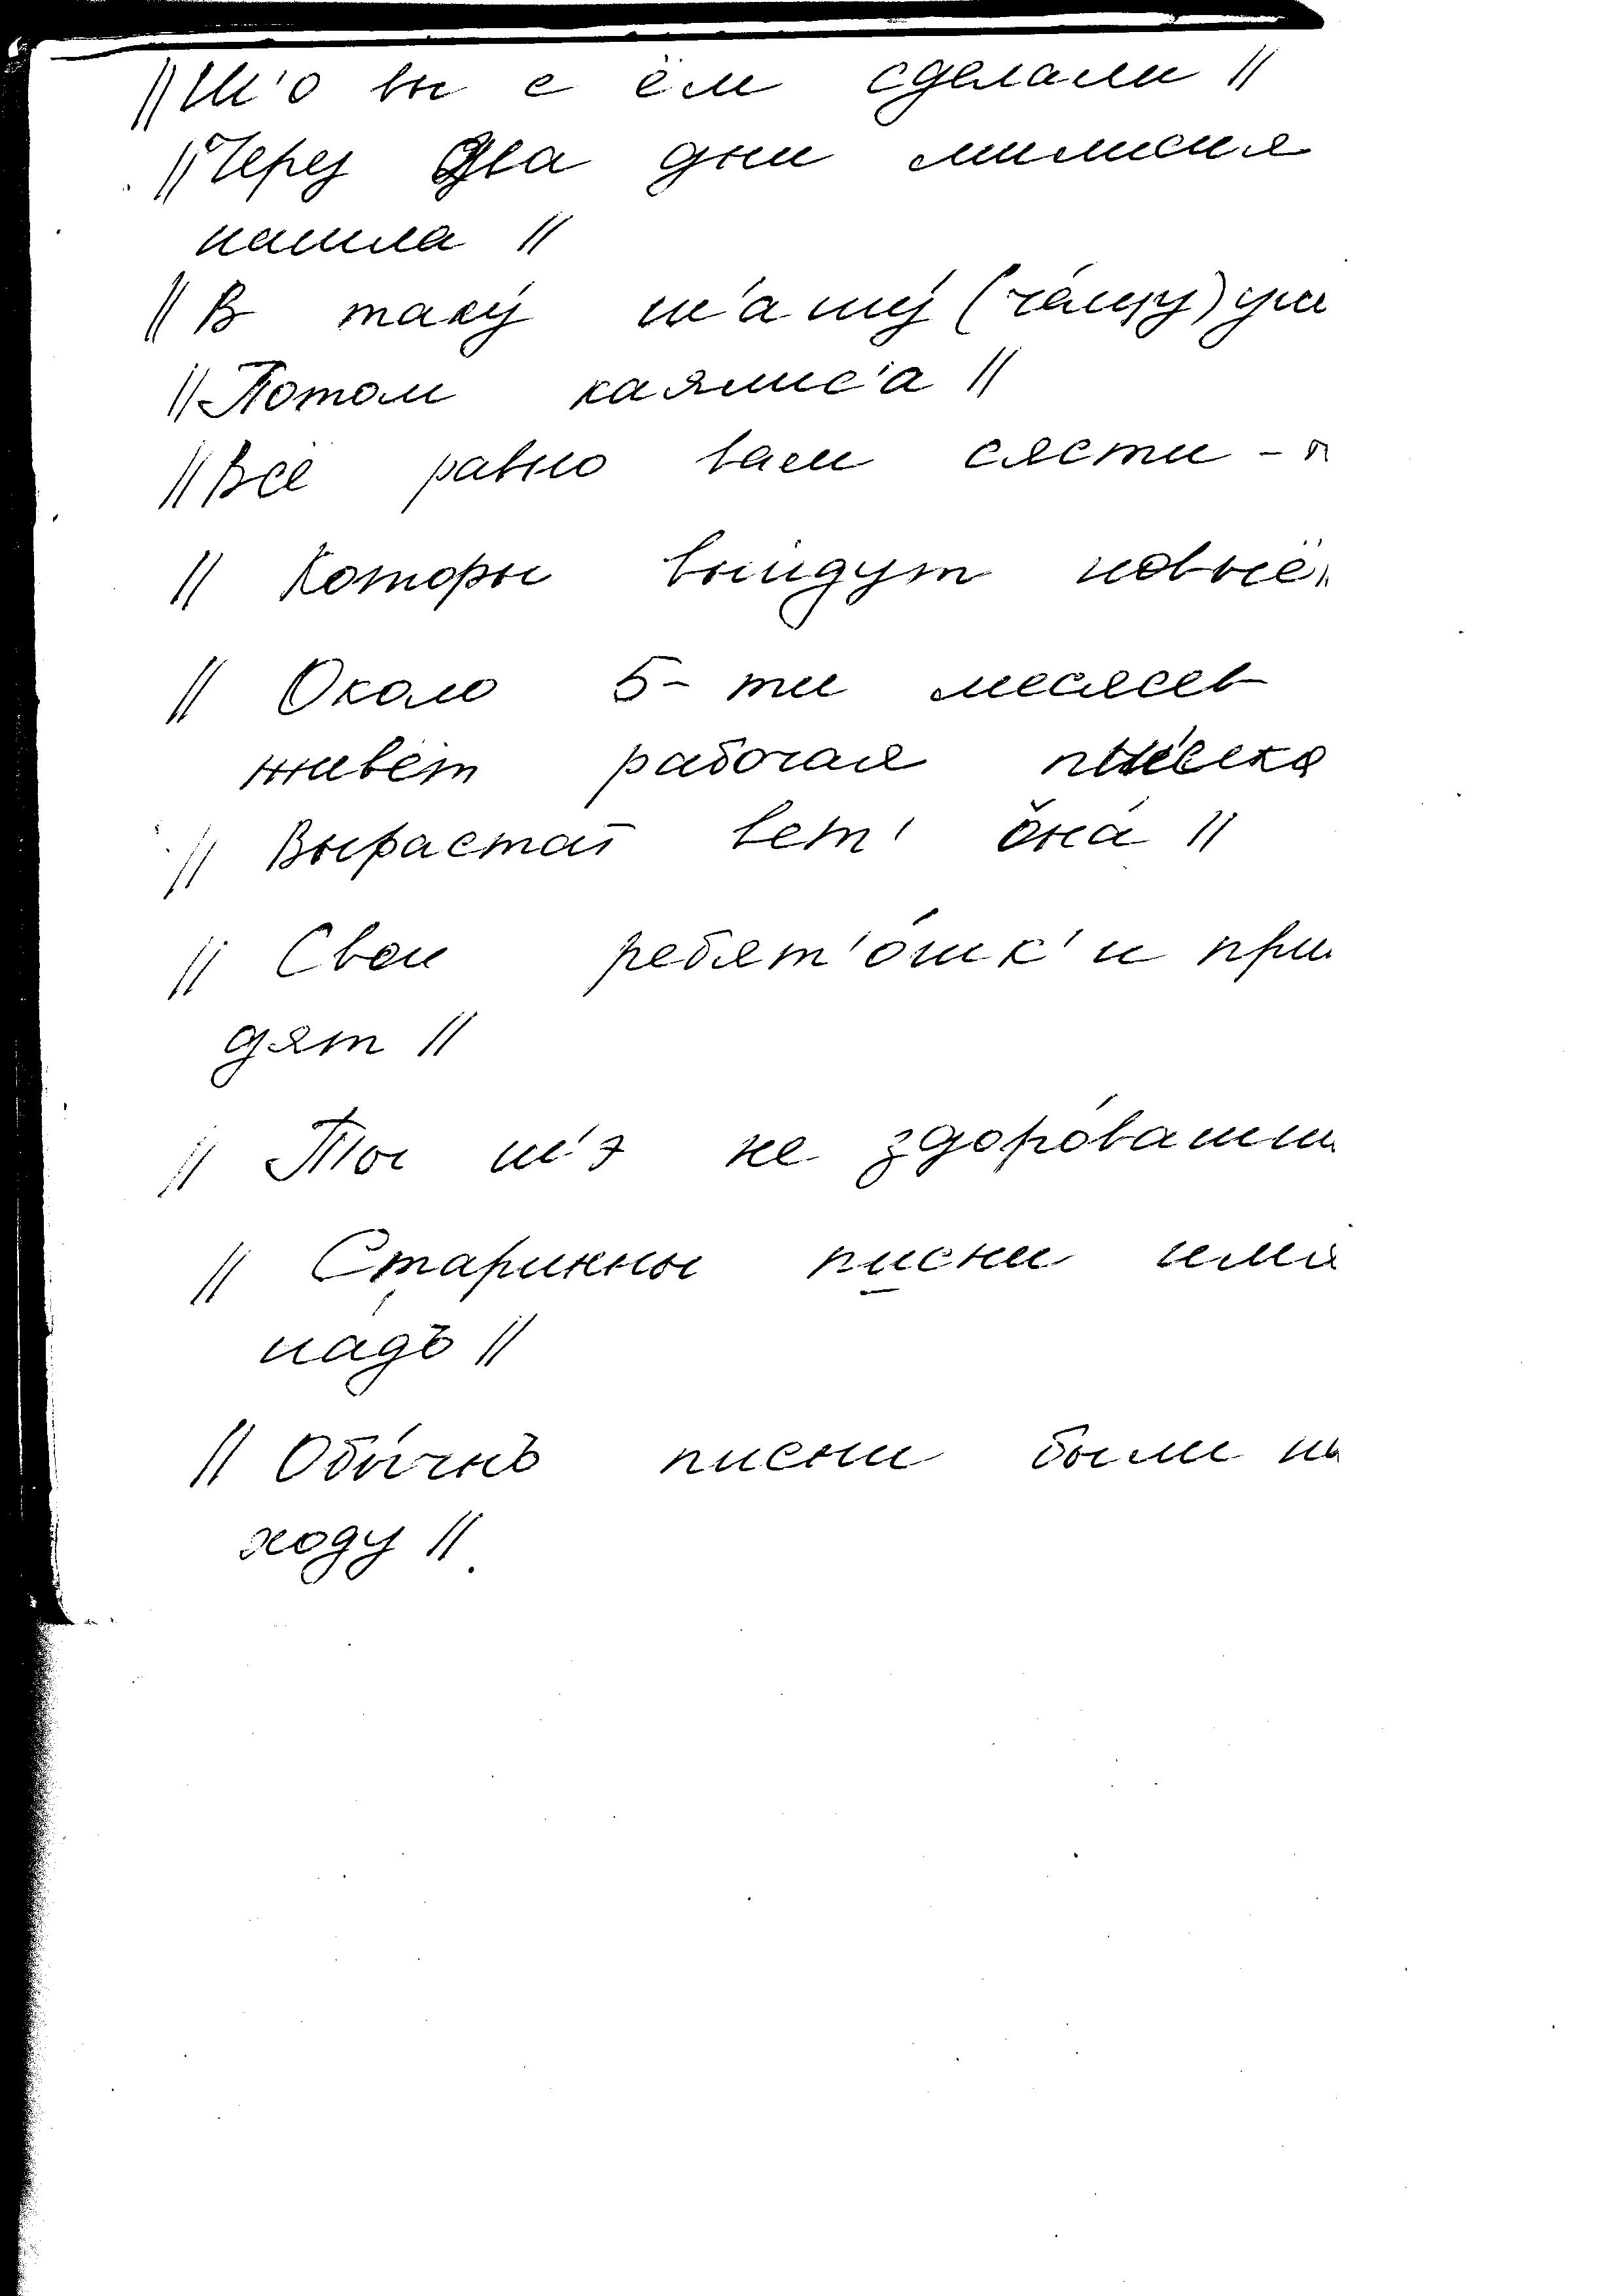 // Ш'о вы с ём сделали //
// Через два дни милисия
нашла //
// В таку́ ш'а шу́ (ча́щу) уш
// Потом каялис'а //
// Всё равно вам сясти -
// Которы выйдут новыё
// Около 5-ти месясев
живёт рабочая
// Вырастат вет' она́ //
// Свои ребят'о́шк'и при
дят //
// Ты ш'э не здоро́вашш
// Старинны писни
на́дъ //
// Обы́чнъ писни были на
ходу //